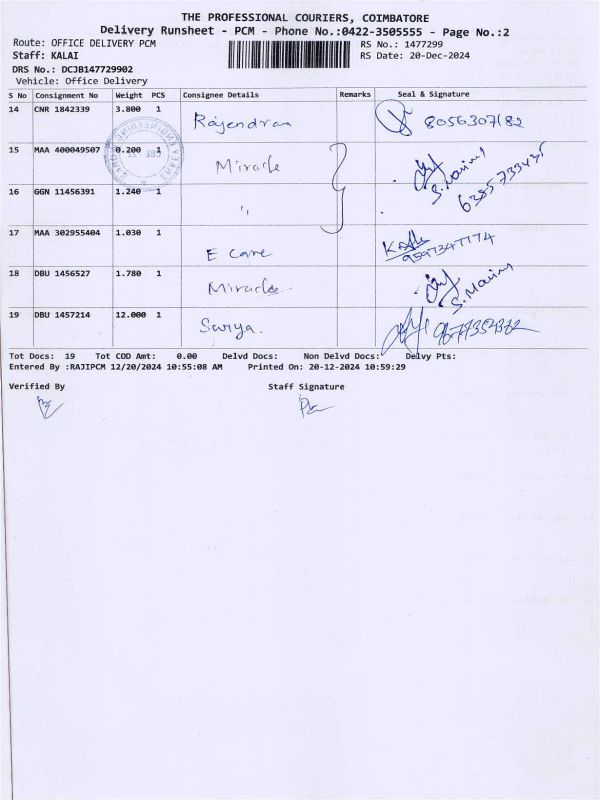 THE PROFESSIONAL COURIERS, COIMBATORE
Delivery Runsheet - PCM - Phone No.:0422-3505555 - Page No.:2
Route: OFFICE DELIVERY PCM
RS No.: 1477299
Staff: KALAI
RS Date: 20-Dec-2024
DRS No.: DCJB147729902
Vehicle: Office Delivery
S No Consignment No Weight PCS Consignee Details Remarks Seal & Signature
14 CNR 1842339 3.800 1 Rajendran 8056307182
15 MAA 400049507 0.200 1 Miracle
16 GGN 11456391 1.240 1 "
17 MAA 302955404 1.030 1 E care 9597347774
18 DBU 1456527 1.780 1 Miracle
19 DBU 1457214 12.000 1 Surya.
Tot Docs: 19 Tot COD Amt: 0.00 Delvd Docs: Non Delvd Docs: Delvy Pts:
Entered By :RAJIPCM 12/20/2024 10:55:08 AM Printed On: 20-12-2024 10:59:29
Verified By Staff Signature